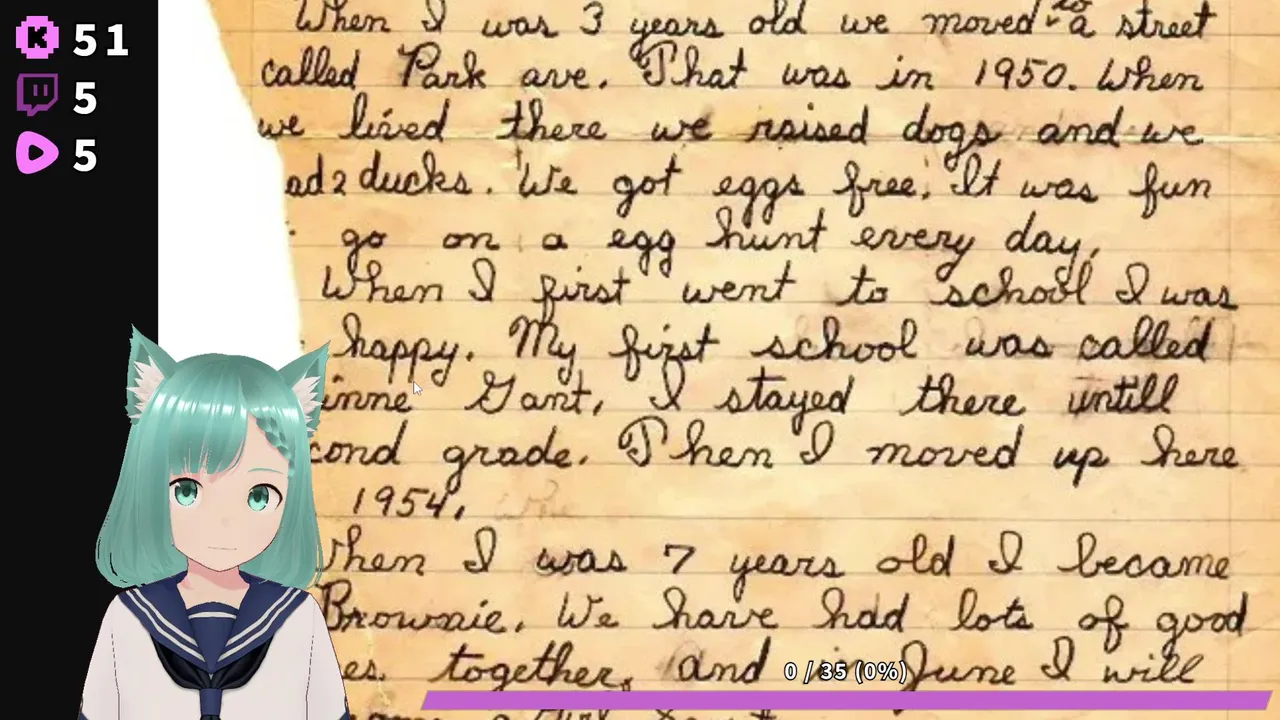 51
5
5
When I was 3 years old we moved to a street
called Park ave. That was in 1950. When
we lived there we raised dogs and we
ad 2 ducks. We got eggs free. It was fun
go on a egg hunt every day.
When I first went to school I was
happy. My first school was called
inne Gant. I stayed there untill
cond grade. Then I moved up here
1954.
When I was 7 years old I became
Brownie. We have had lots of good
es together, and in June I will
0 / 35 (0%)